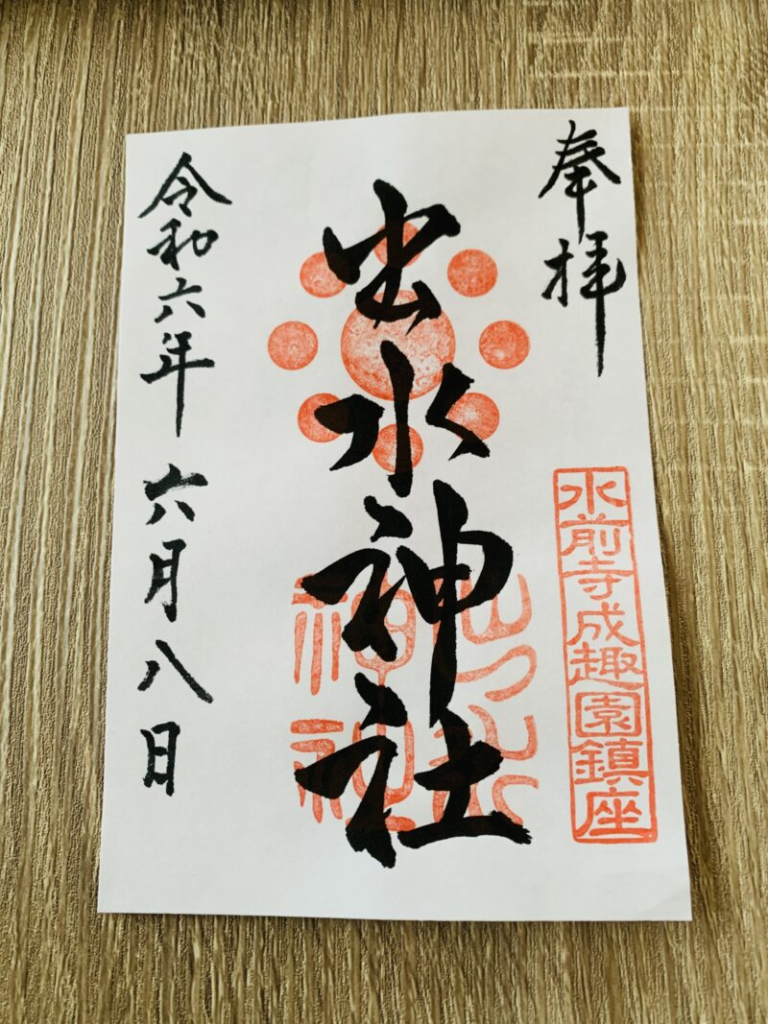 奉拝
水前寺成趣園鎮座
出水神社
令和六年 六月八日